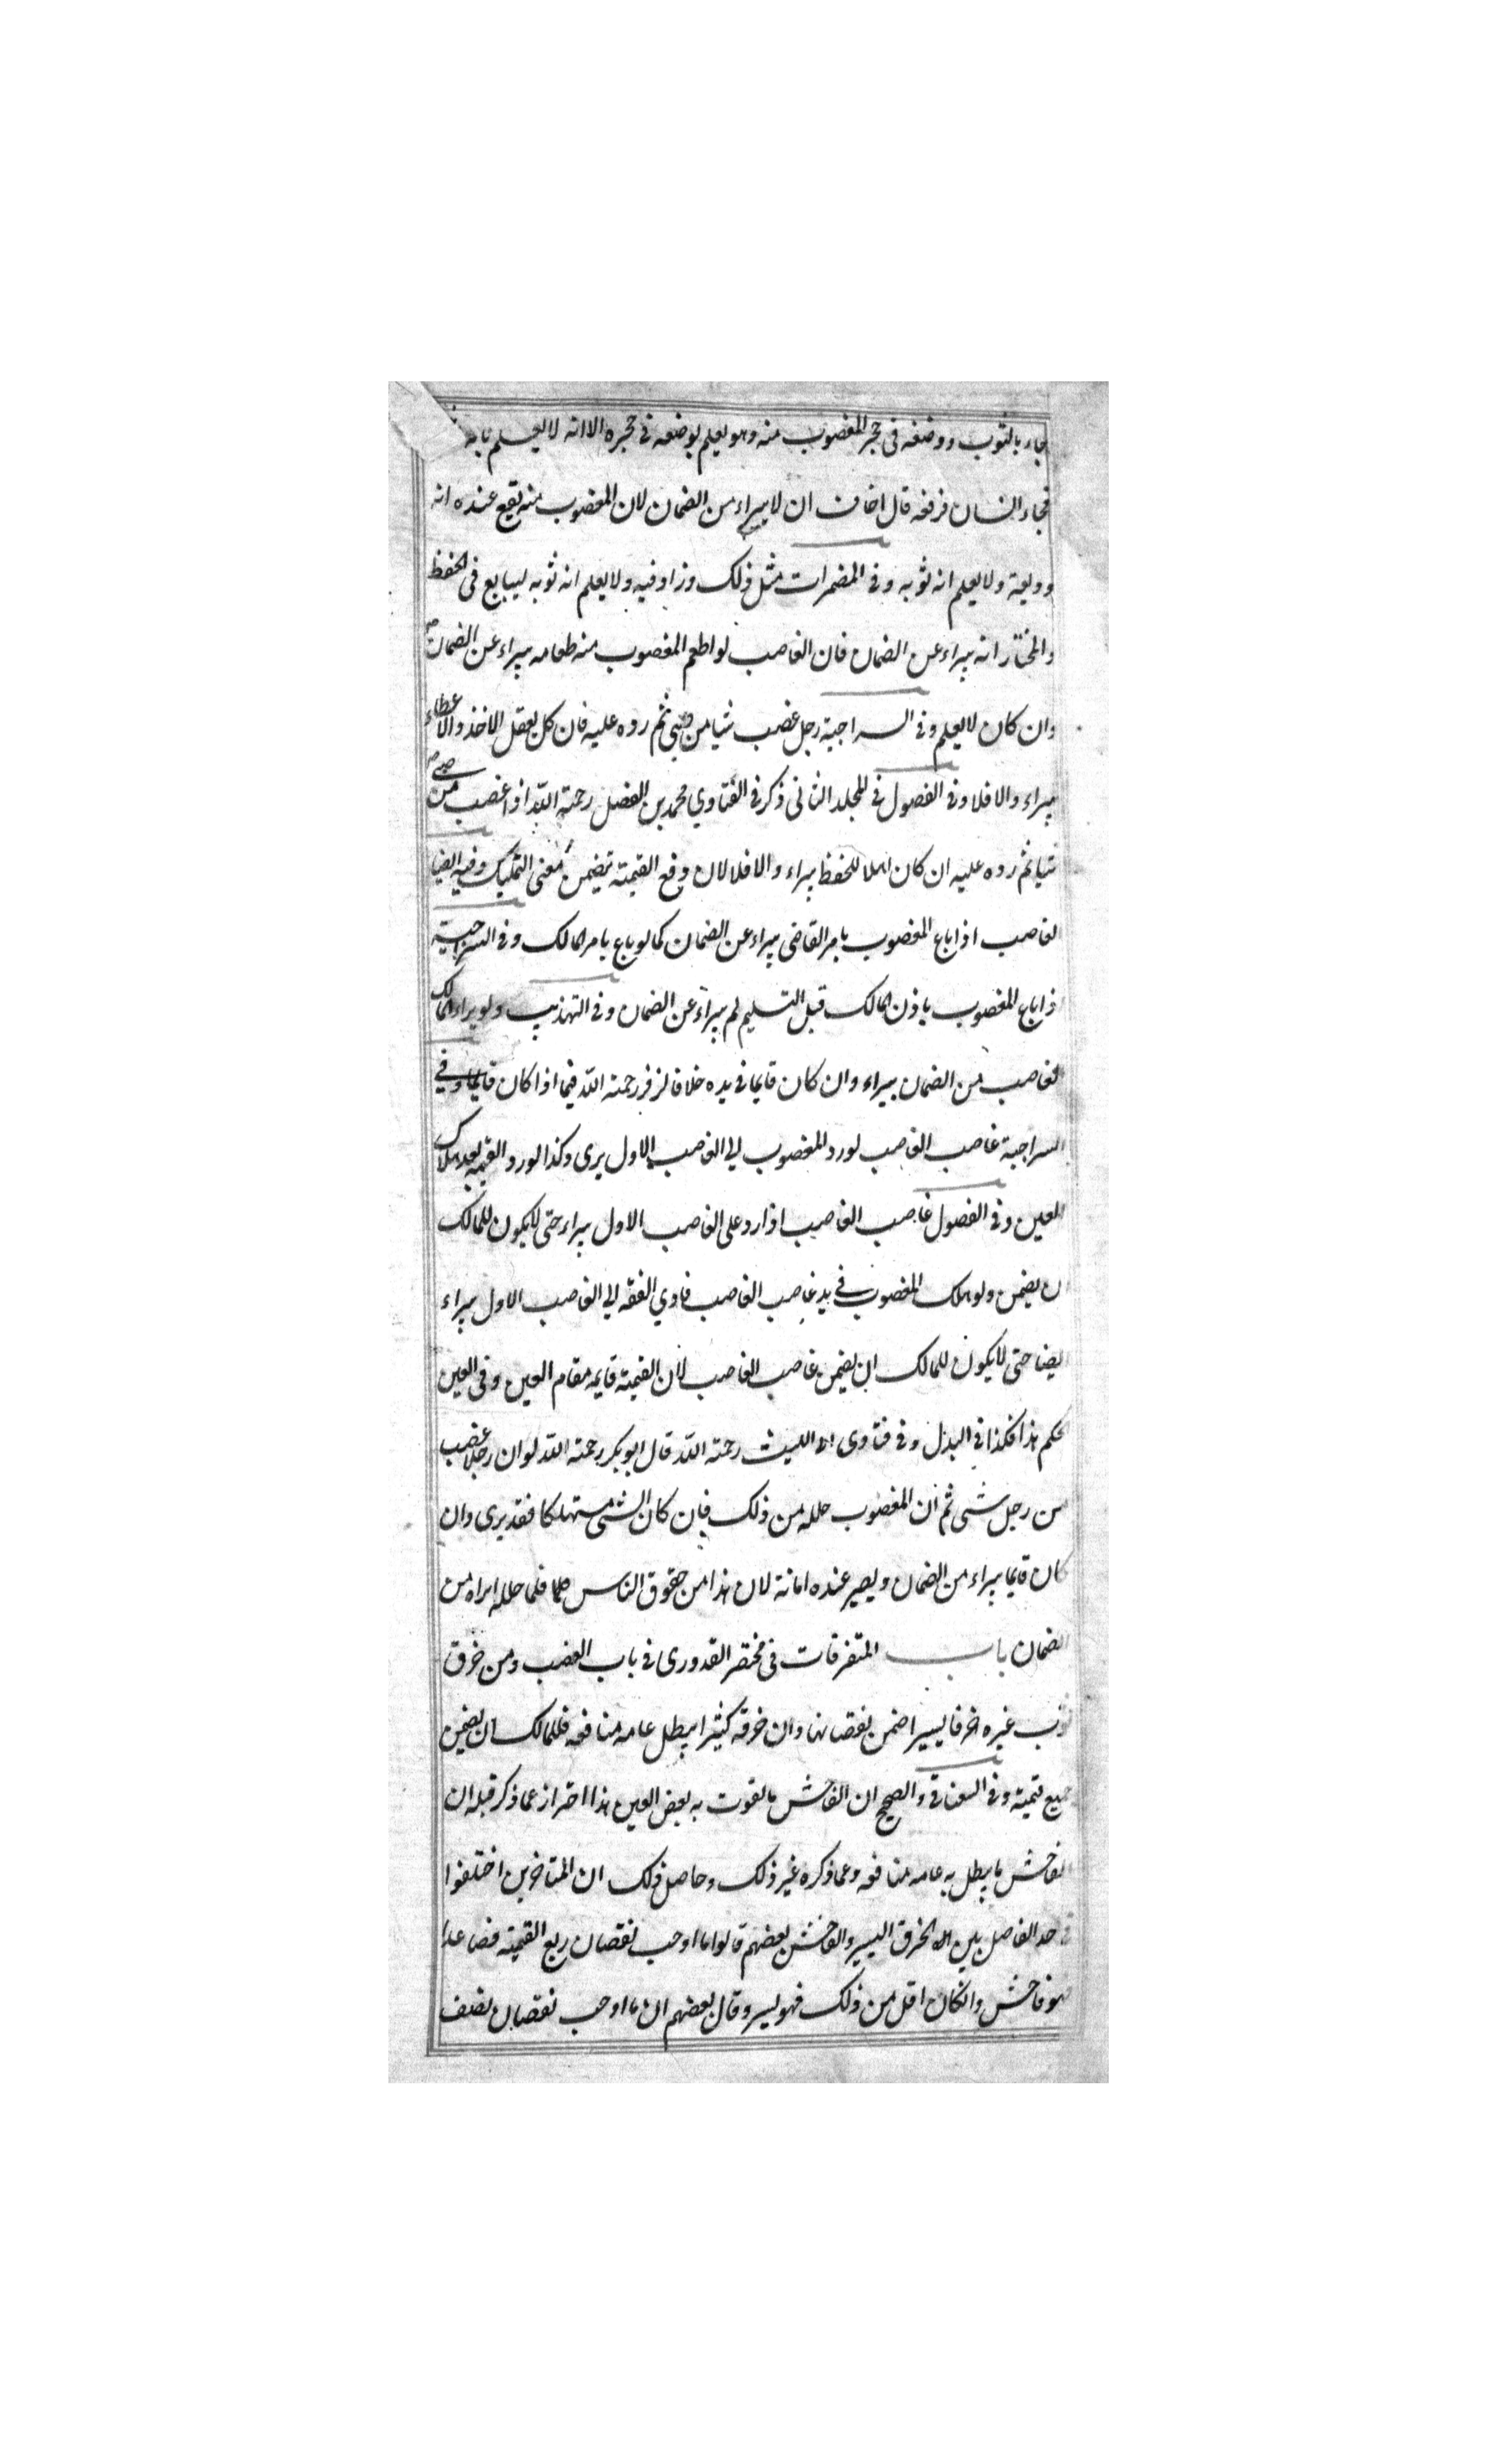 جاء بالثوب ووضعه فى حجر المغصوب منه وهو يعلم بوضعه فى حجره الا انه لا يعلم بانه
فجاء انسان فرفعه قال اخاف ان لا يبراء من الضمان لان المغصوب منه يقع عنده انه
وديعة ولا يعلم انه ثوبه وفى المضمرات مثل ذلك وزاد فيه ولا يعلم انه ثوبه ليبالع فى الحفظ
والمختار انه يبراء عن الضمان فان الغاصب لو اطعم المغصوب منه طعامه يبراء عن الضمان
وان كان لا يعلم وفى السراجية رجل غصب شيا من صبي ثم رده عليه فان كان يعقل الاخذ والاعطاء
يبراء والا فلا وفى الفصول فى المجلد الثانى ذكر فى الفتاوي محمد بن الفضل رحمة الله اذا غصب من صبى
شيا ثم رده عليه ان كان اهلا للحفظ يبراء والا فلا لان دفع القيمة تيضمن معنى التمليك وفيه ايضا
لغاصب اذا باع المغصوب بامر القاضى يبراء عن الضمان كما لو باع بامر المالك وفى السراجية
ذا باع المغصوب باذن المالك قبل التسليم لم يبراء عن الضمان وفى التهذيب ولو يبراء المالك
لغاصب من الضمان يبراء وان كان قايما فى يده خلافا لزفر رحمة الله فيما اذا كان قايما وفي
السراجية غاصب الغاصب لو رد المغصوب الى الغاصب الاول يرى وكذا لو رد القيمه بعد هلاك
العين وفى الفصول غاصب الغاصب اذا رد على الغاصب الاول يبراء حتى لا يكون للمالك
ان يضمن ولو هلك المغصوب فى يد غاصب الغاصب فادي القمه الى الغاصب الاول يبراء
ايضا حتى لا يكون للمالك ان يضمن غاصب الغاصب لان القيمة قايمه مقام العين وفى العين
لحكم هذا فكذا فى البدل وفى فتاوى ابى الليث رحمة الله قال ابو بكر رحمة الله لو ان رجلا غصب
من رجل شى ثم ان المغصوب حلله من ذلك فان كان الشى مستهلكا فقد يرى وان
كان قايما يبراء من الضمان ويصير عنده امانة لان هذا من حقوق الناس فلما حلله ابراه من
الضمان باب المتفرقات فى مختصر القدورى فى باب الغصب ومن خرق
ثوب غيره خرقا يسيرا ضمن نقصانها وان خرقه كثيرا يبطل عامه منافعه فللمالك ان يضمن
جميع قيمته وفى السغناقى والصحيح ان الفاحش ما يفوت به بعض العين هذا احتراز عما ذكر قبله ان
لفاحش ما يبطل به عامه منافعه وعما ذكره غير ذلك وحاصل ذلك ان المتاخرين اختلفوا
فى حد الفاصل بين الخرق اليسير والفاحش بعضهم قالوا ما اوجب نقصان ربع القيمة فصاعدا
فهو فاحش وانكان اقل من ذلك فهو يسير وقال بعضهم ان ما اوجب نقصان نصف